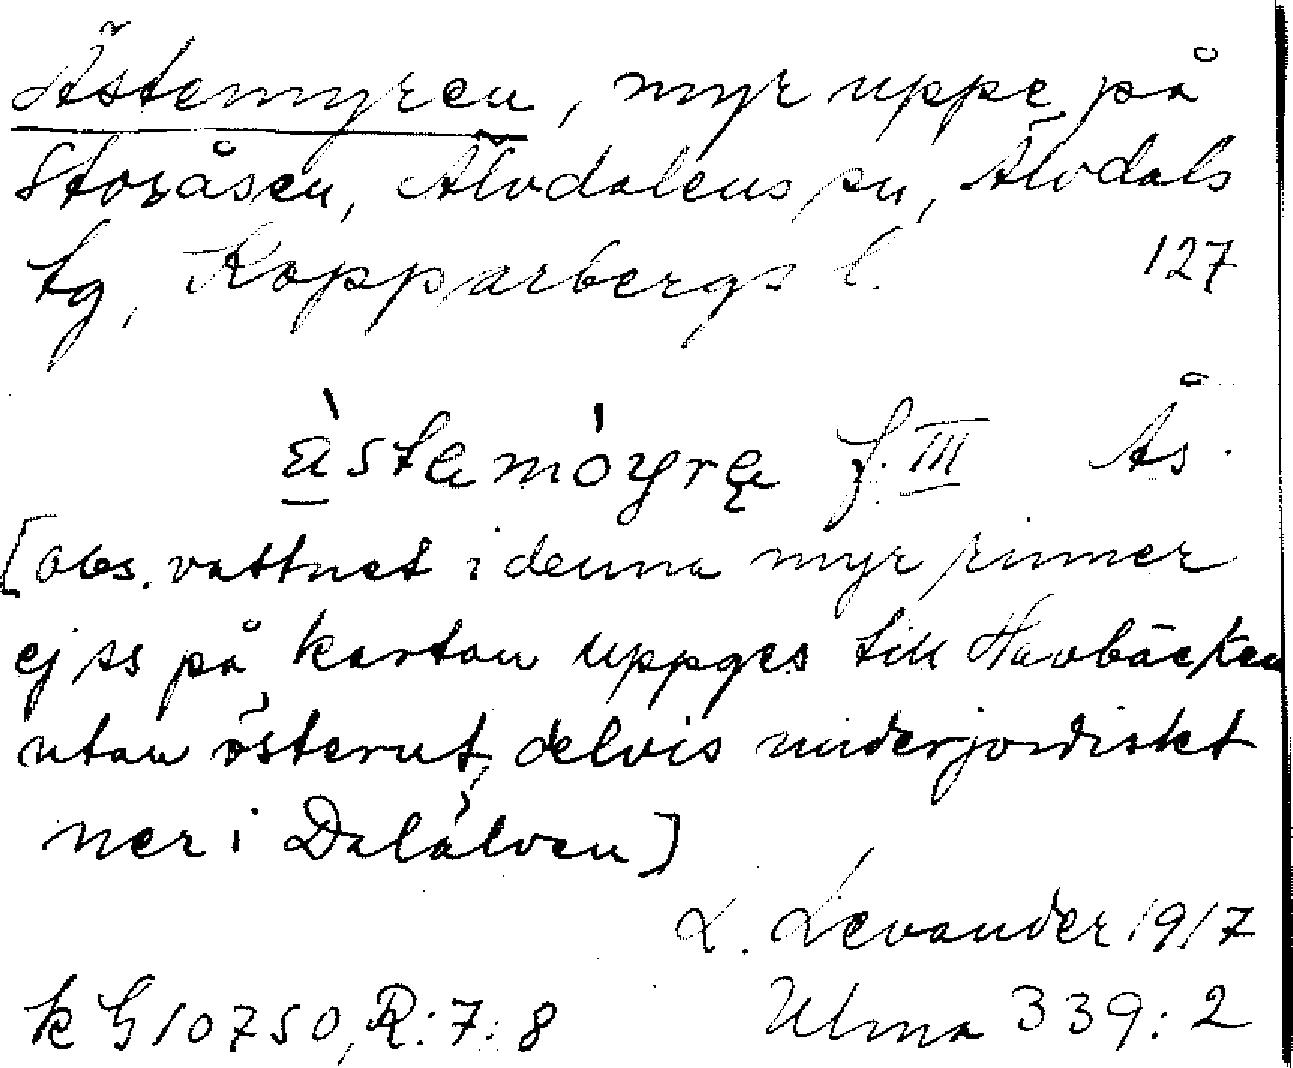 Ästemyren, myr uppe på
Storåsen, Älvdalens sn, Älvdals
tg, Kopparbergs l. 127
å̱̀stamóyrą f. III Ås.
[obs. vattnet i denna myr rinner
ej ss på kartan uppges till Havbäcken
utan österut, delvis underjordiskt
ner i Dalälven]
L. Levander 1917
k G 10750, R:7:8 Ulma 339:2